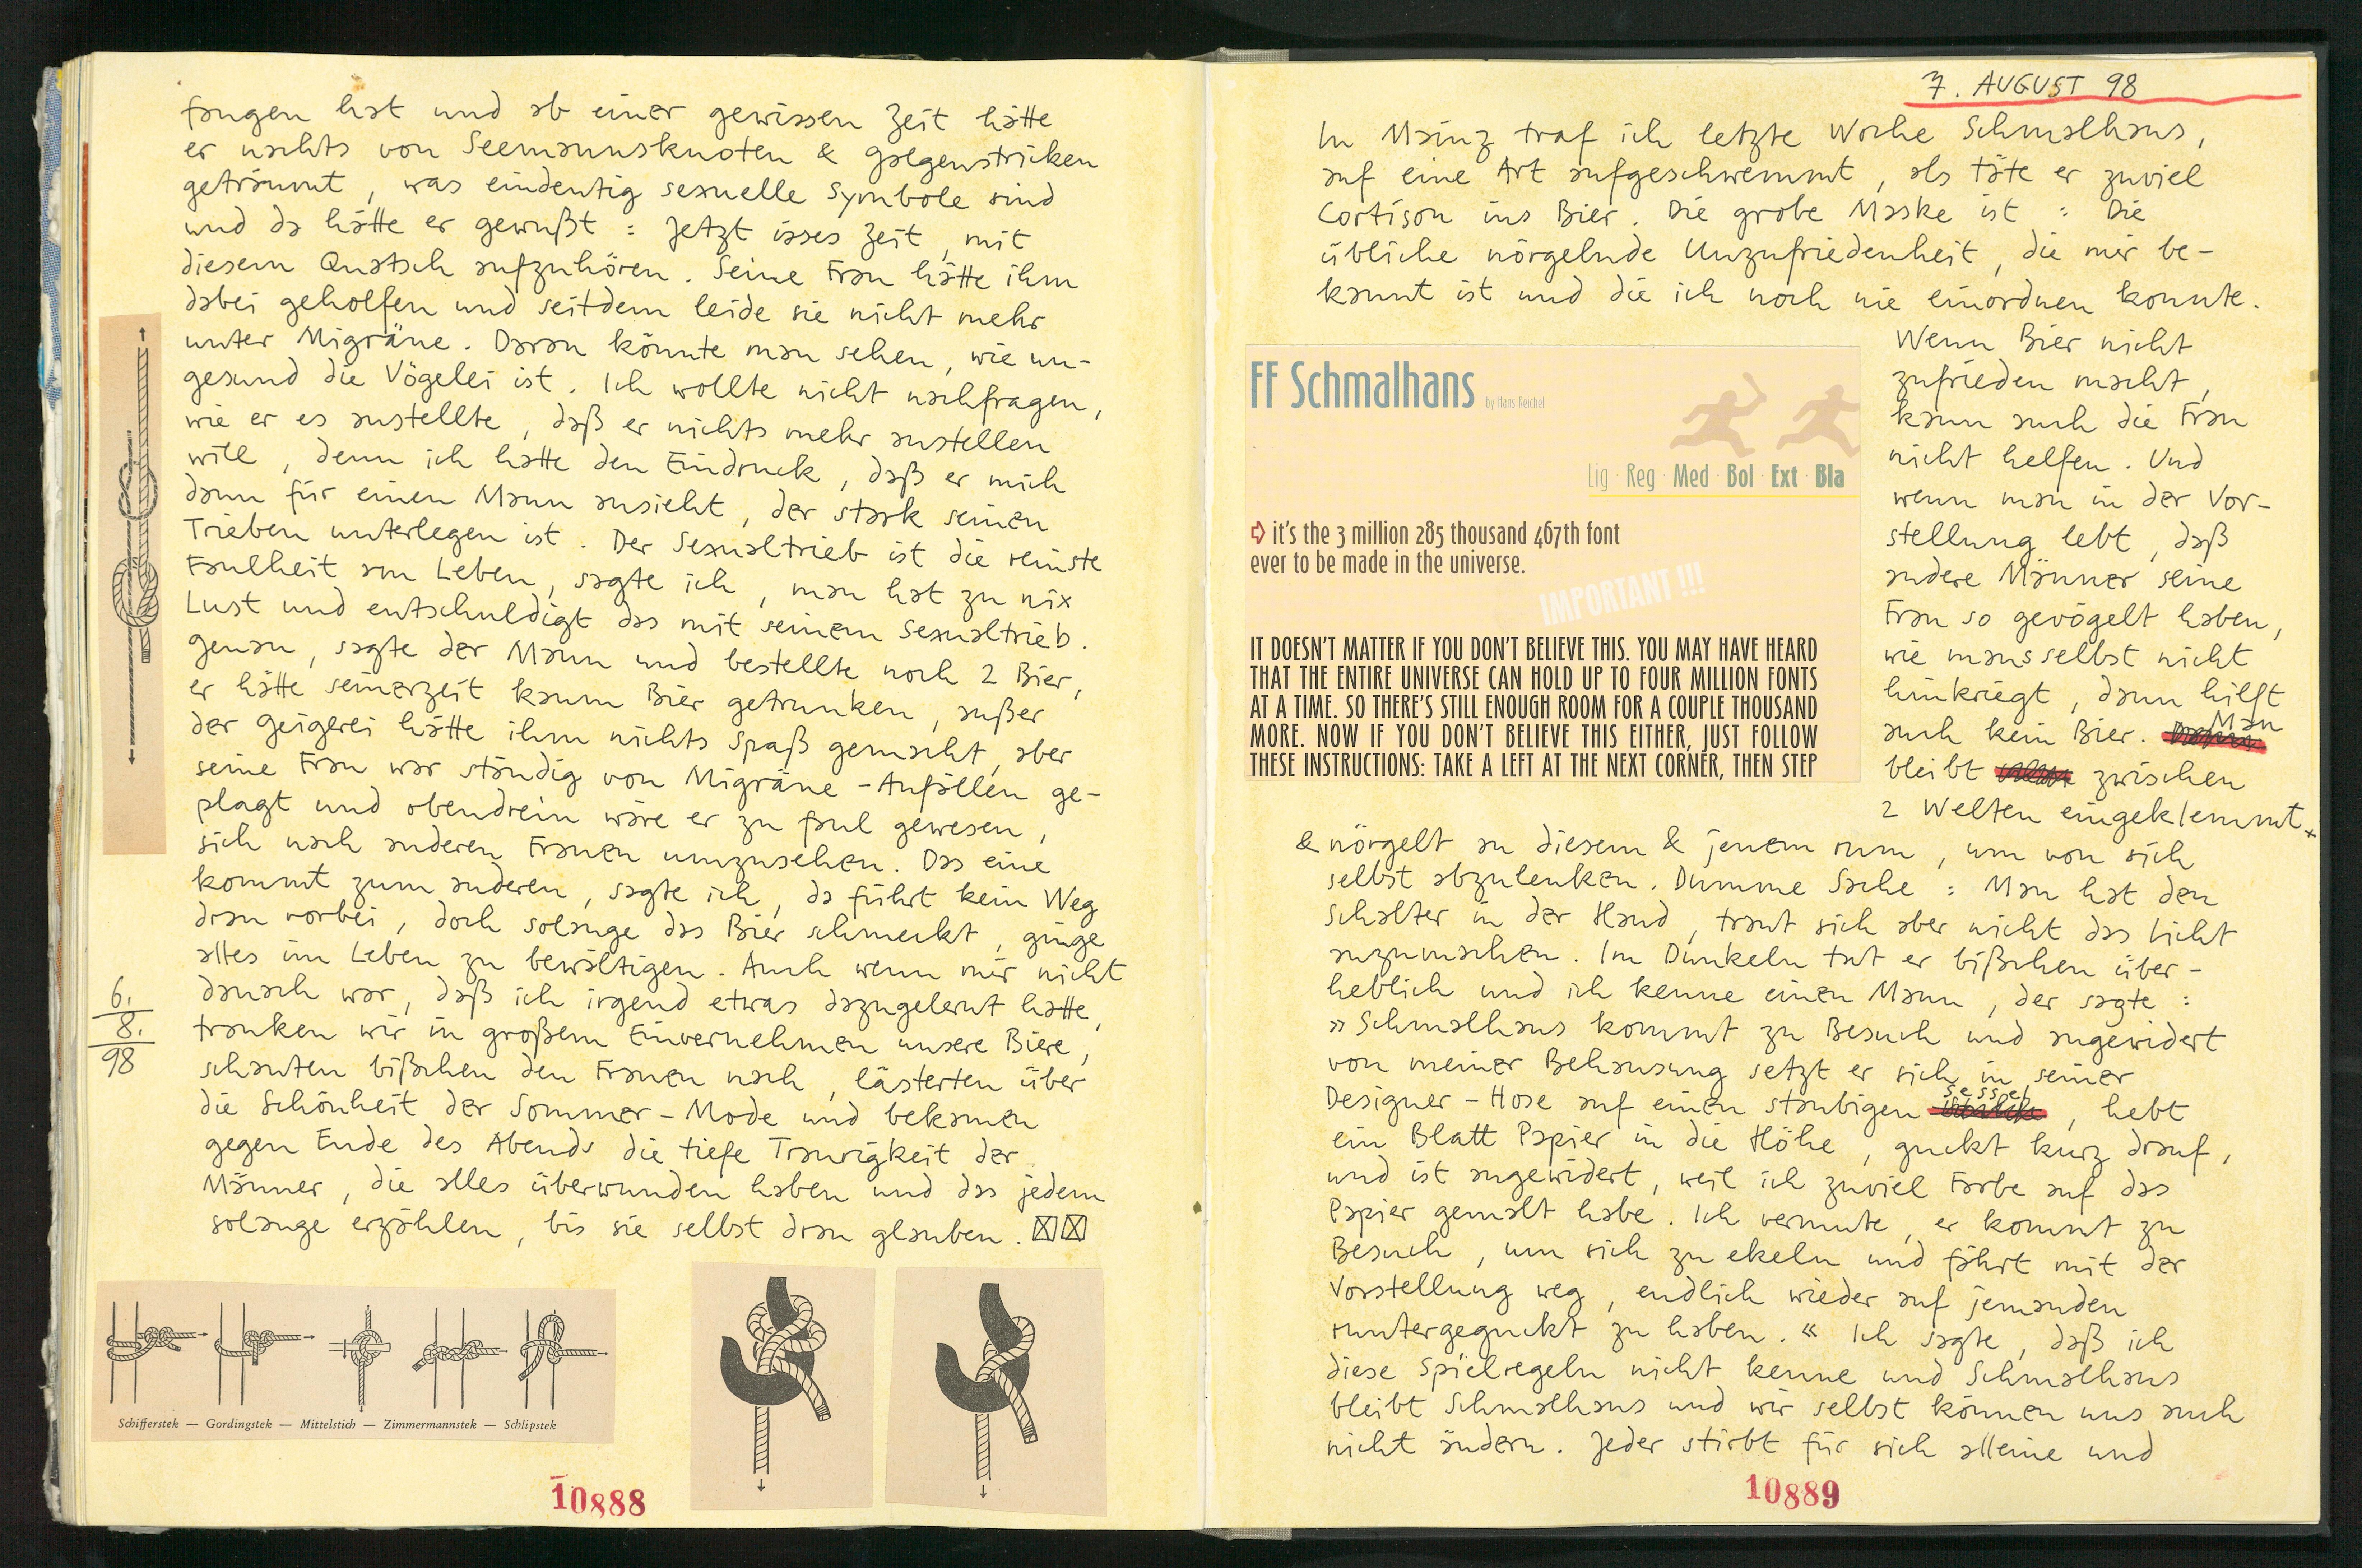 fangen hat und ab einer gewissen Zeit hätte
er nachts von Seemannsknoten & Galgenstricken
geträumt, was eindeutig sexuelle Symbole sind
und da hätte er gewußt: Jetzt isses Zeit, mit
diesem Quatsch aufzuhören. Seine Frau hätte ihm
dabei geholfen und seitdem leide sie nicht mehr
unter Migräne. Daran könnte man sehen, wie un-
gesund die Vögelei ist. Ich wollte nicht nachfragen,
wie er es anstellte, daß er nichts mehr anstellen
will, denn ich hatte den Eindruck, daß er mich
dann für einen Mann ansieht, der stark seinen
Trieben unterlegen ist. Der Sexualtrieb ist die reinste
Faulheit am Leben, sagte ich, man hat zu nix
Lust und entschuldigt das mit seinem Sexualtrieb.
Genau, sagte der Mann und bestellte noch 2 Bier,
er hätte seinerzeit kaum Bier getrunken, außer
der Geigerei hätte ihm nichts Spaß gemacht, aber
seine Frau war ständig von Migräne-Anfällen ge-
plagt und obendrein wäre er zu faul gewesen,
sich nach anderen Frauen umzusehen. Das eine
kommt zum anderen, sagte ich, da führt kein Weg
dran vorbei, doch solange das Bier schmeckt, ginge
alles im Leben zu bewältigen. Auch wenn mir nicht
danach war, daß ich irgend etwas dazugelernt hatte,
tranken wir in großem Einvernehmen unsere Biere,
schauten bißchen den Frauen nach, lästerten über
die Schönheit der Sommer-Mode und bekamen
gegen Ende des Abends die tiefe Traurigkeit der
Männer, die alles überwunden haben und das jedem
solange erzählen, bis sie selbst dran glauben.
6.
8.
98
Schifferstek — Gordingstek — Mittelstich — Zimmermannstek — Schlipstek
10888
7. AUGUST 98
In Mainz traf ich letzte Woche Schmalhans,
auf eine Art aufgeschwemmt, als täte er zuviel
Cortison ins Bier. Die grobe Maske ist: Die
übliche nörgelnde Unzufriedenheit, die mir be-
kannt ist und die ich noch nie einordnen konnte.
Wenn Bier nicht
zufrieden macht,
kann auch die Frau
nicht helfen. Und
wenn man in der Vor-
stellung lebt, daß
andere Männer seine
Frau so gevögelt haben,
wie mans selbst nicht
hinkriegt, dann hilft
auch kein Bier. Man
bleibt zwischen
2 Welten eingeklemmt
& nörgelt an diesem & jenem rum, um von sich
selbst abzulenken. Dumme Sache: Man hat den
Schalter in der Hand, traut sich aber nicht das Licht
anzumachen. Im Dunkeln tut er bißchen über-
heblich und ich kenne einen Mann, der sagte:
»Schmalhans kommt zu Besuch und angewidert
von meiner Behausung setzt er sich in seiner
Designer-Hose auf einen staubigen Sessel, hebt
ein Blatt Papier in die Höhe, guckt kurz drauf,
und ist angewidert, weil ich zuviel Farbe auf das
Papier gemalt habe. Ich vermute, er kommt zu
Besuch, um sich zu ekeln und fährt mit der
Vorstellung weg, endlich wieder auf jemanden
runtergeguckt zu haben.« Ich sagte, daß ich
diese Spielregeln nicht kenne und Schmalhans
bleibt Schmalhans und wir selbst können uns auch
nicht ändern. Jeder stirbt für sich alleine und
FF Schmalhans by Hans Reichel
Lig · Reg · Med · Bol · Ext · Bla
it's the 3 million 285 thousand 467th font
ever to be made in the universe.
IMPORTANT !!!
IT DOESN'T MATTER IF YOU DON'T BELIEVE THIS. YOU MAY HAVE HEARD
THAT THE ENTIRE UNIVERSE CAN HOLD UP TO FOUR MILLION FONTS
AT A TIME. SO THERE'S STILL ENOUGH ROOM FOR A COUPLE THOUSAND
MORE. NOW IF YOU DON'T BELIEVE THIS EITHER, JUST FOLLOW
THESE INSTRUCTIONS: TAKE A LEFT AT THE NEXT CORNER, THEN STEP
10889